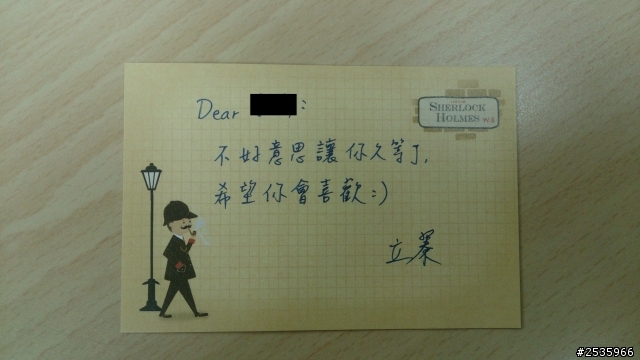 Dear :
SHERLOCK
HOLMES
不好意思讓你久等了,
希望你會喜歡:)
立
#2535966